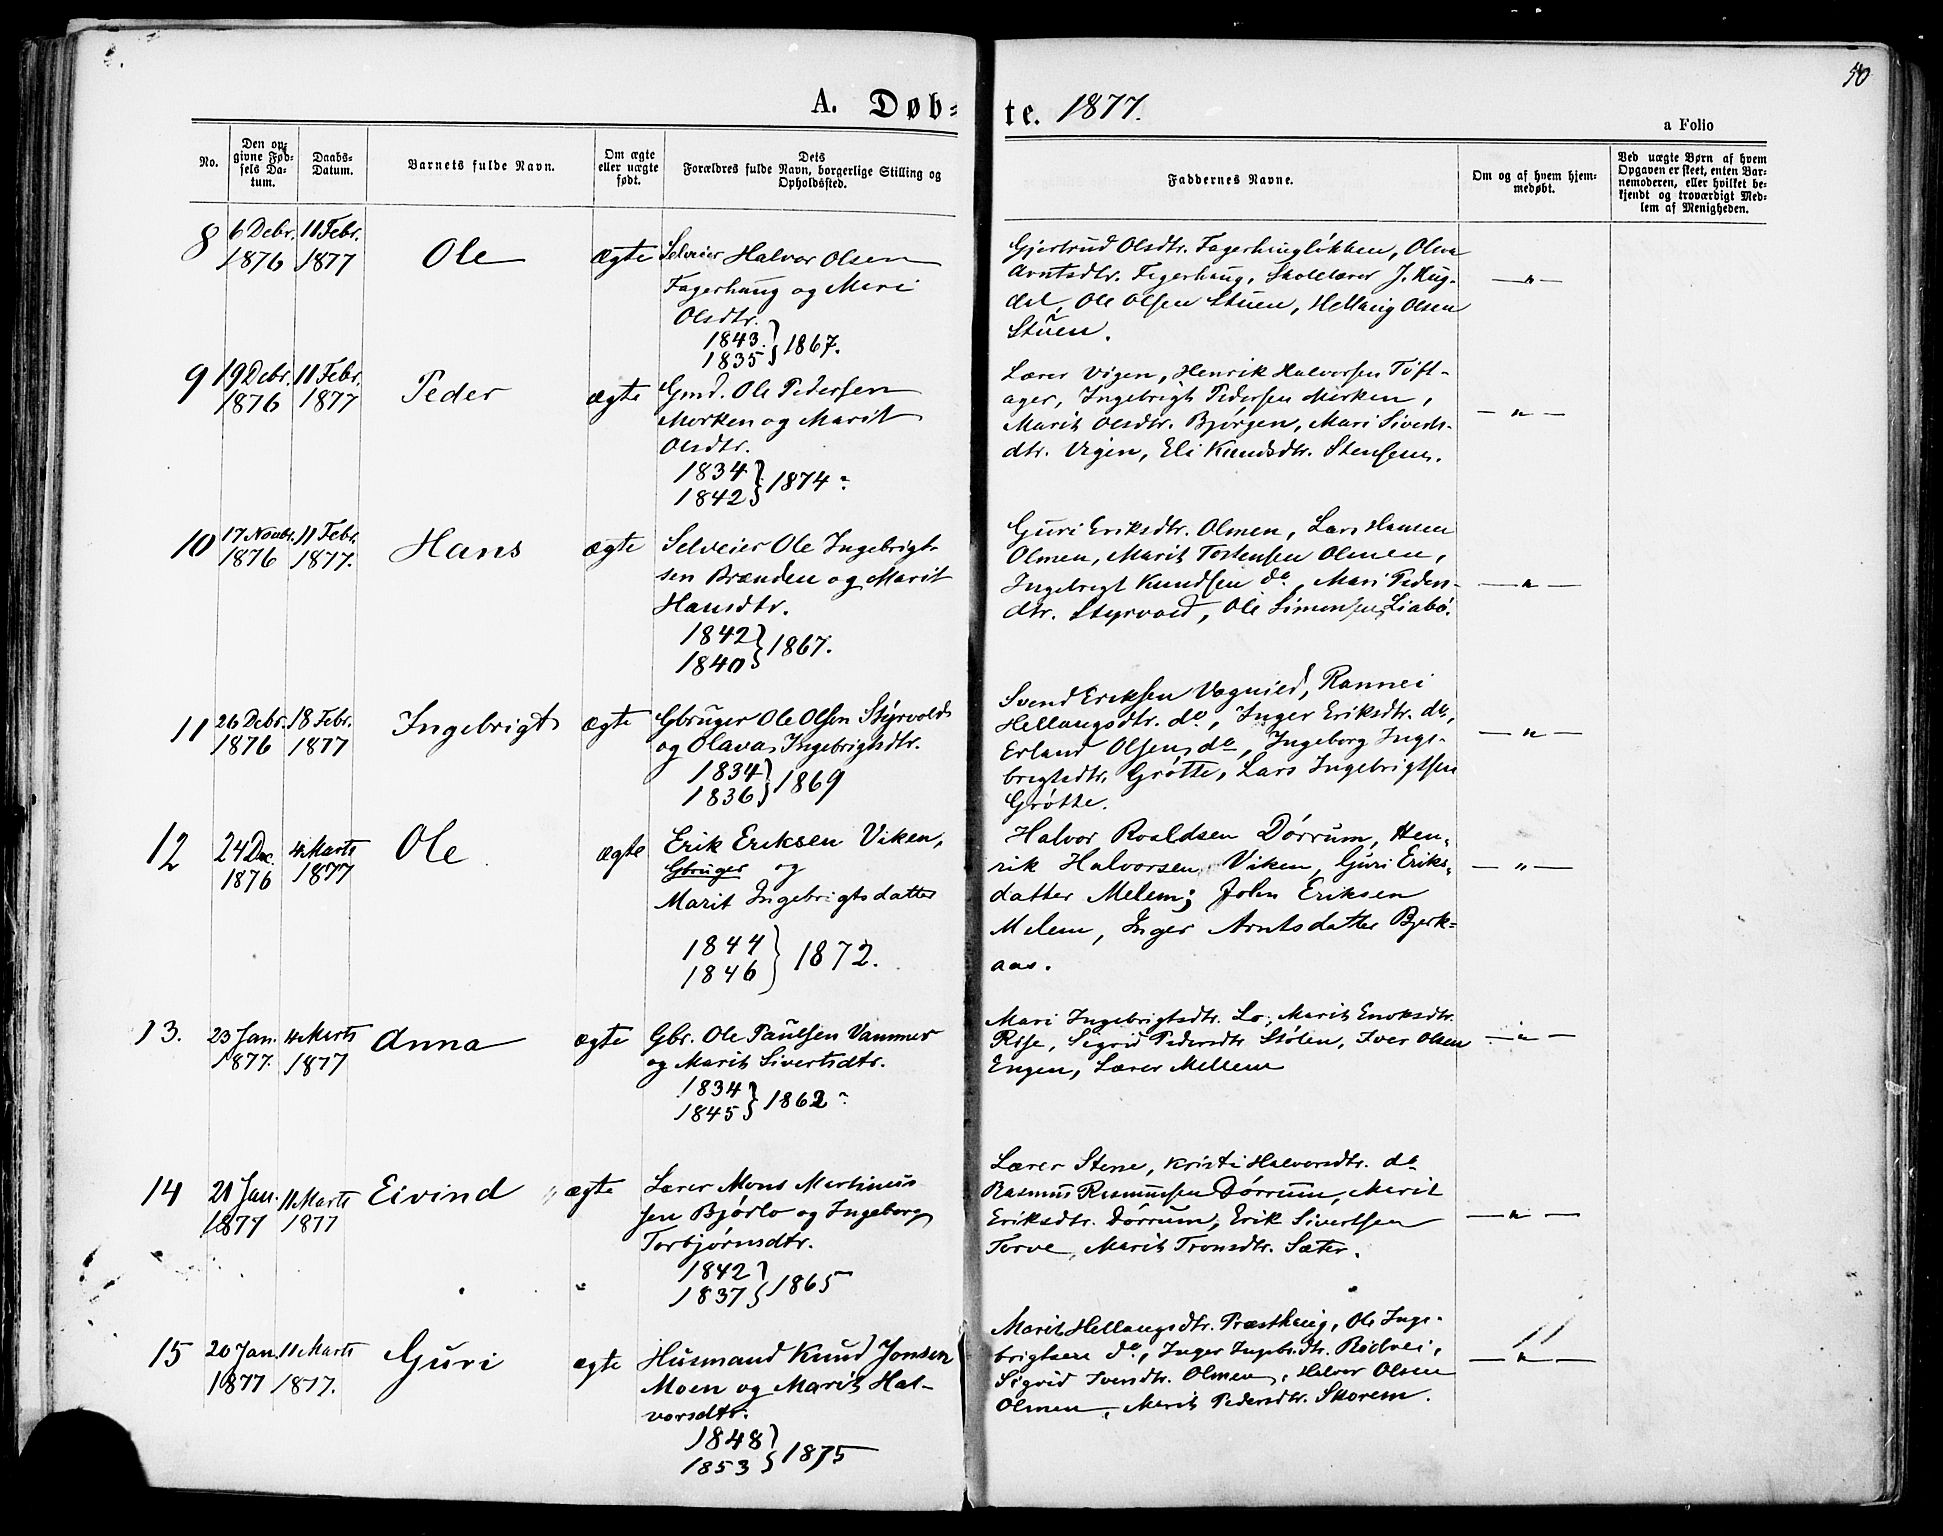 50
A. Døb-te. 1877.
a Folio
No.
Den op-
givne Fød-
sels Da-
tum.
Daabs-
Datum.
Barnets fulde Navn.
Om ægte
eller uægte
født.
Dets
Forældres fulde Navn, borgerlige Stilling og
Opholdssted.
Faddernes Navne.
Om og af hvem hjem-
medøbt.
Ved uægte Børn af hvem
Opgaven er skeet, enten Bar-
nemoderen, eller hvilket be-
kjendt og troværdigt Med-
lem af Menigheden.
8
6 Debr.
1876
11 Febr.
1877
Ole
ægte
Selveier Halvor Olsen
Fagerhaug og Mari
Olsdtr.
1843.
1835 } 1867.
Gjertrud Olsdtr. Fagerhaugløkken, Olava
Arntsdtr. Fagerhaug, Skolelærer J. Hug-
dal, Ole Olsen Stuen, Hellaug Olsen
Stuen.
— " —
9
19 Debr.
1876
11 Febr.
1877
Peder
ægte
Gmd. Ole Pedersen
Morken og Marit
Olsdtr.
1834
1842 } 1874
Lærer Vigen, Henrik Halvorsen Tøft-
ager, Ingebrigt Pedersen Morken,
Marit Olsdtr. Bjørgen, Mari Siverts-
dtr. Vigen, Eli Knudsdtr. Stensem.
— " —
10
17 Novbr.
1876
11 Febr.
1877.
Hans
ægte
Selveier Ole Ingebrigt-
sen Brænden og Marit
Hansdtr.
1842
1840 } 1867.
Guri Eriksdtr. Olmen, Lars Hansen
Olmen, Marit Torstensen Olmen,
Ingebrigt Knudsen do, Mari Peders-
dtr. Styrvold, Ole Simonsen Liabø.
— " —
11
26 Debr.
1876
18 Febr.
1877
Ingebrigt
ægte
Gbruger Ole Olsen Styrvold
og Olava Ingebrigtsdtr.
1834
1836 } 1869
Svend Eriksen Vognild, Rannei
Hellaugsdtr. do, Inger Eriksdtr. do,
Erland Olsen do, Ingeborg Inge-
brigtsdtr. Grøtte, Lars Ingebrigtsen
Grøtte.
— " —
12
24 Dec.
1876
4 Marts
1877
Ole
ægte
Erik Eriksen Viken,
Gbruger og
Marit Ingebrigtsdatter
1844
1846 } 1872.
Halvor Roaldsen Dørrum, Hen-
rik Halvorsen Viken, Guri Eriks-
datter Melem; John Eriksen
Melem, Inger Arntsdatter Bjerk-
aas.
— " —
13.
23 Jan.
1877.
4 Marts
1877
Anna
ægte
Gbr. Ole Paulsen Vammer
og Marit Sivertsdtr.
1834
1845 } 1862
Mari Ingebrigtsdtr. Lo, Marit Enoksdtr.
Rise, Sigrid Pedersdtr Stølen, Iver Olsen
Engen, Lærer Mellem
— " —
14
21 Jan.
1877
11 Marts
1877
Eivind
ægte
Lærer Mons Martinus
sen Bjørlo og Ingeborg
Torbjørnsdtr.
1842
1837 } 1865
Lærer Stene, Kristi Halvorsdtr. do
Rasmus Rasmussen Dørrum, Marit
Eriksdtr. Dørrum, Erik Sivertsen
Torve, Marit Tronsdtr. Sæter.
— " —
15
20 Jan.
1877
11 Marts
1877.
Guri
ægte
Husmand Knud Jonsen
Moen og Marit Hal-
vorsdtr.
1848
1853 } 1875
Marit Hellaugsdtr. Præsthaug, Ole Inge-
brigtsen do, Inger Ingebr.dtr. Rødvei,
Sigrid Iversdtr. Olmen, Halvor Olsen
Olmen, Marit Pedersdtr. Skorem.
— " —